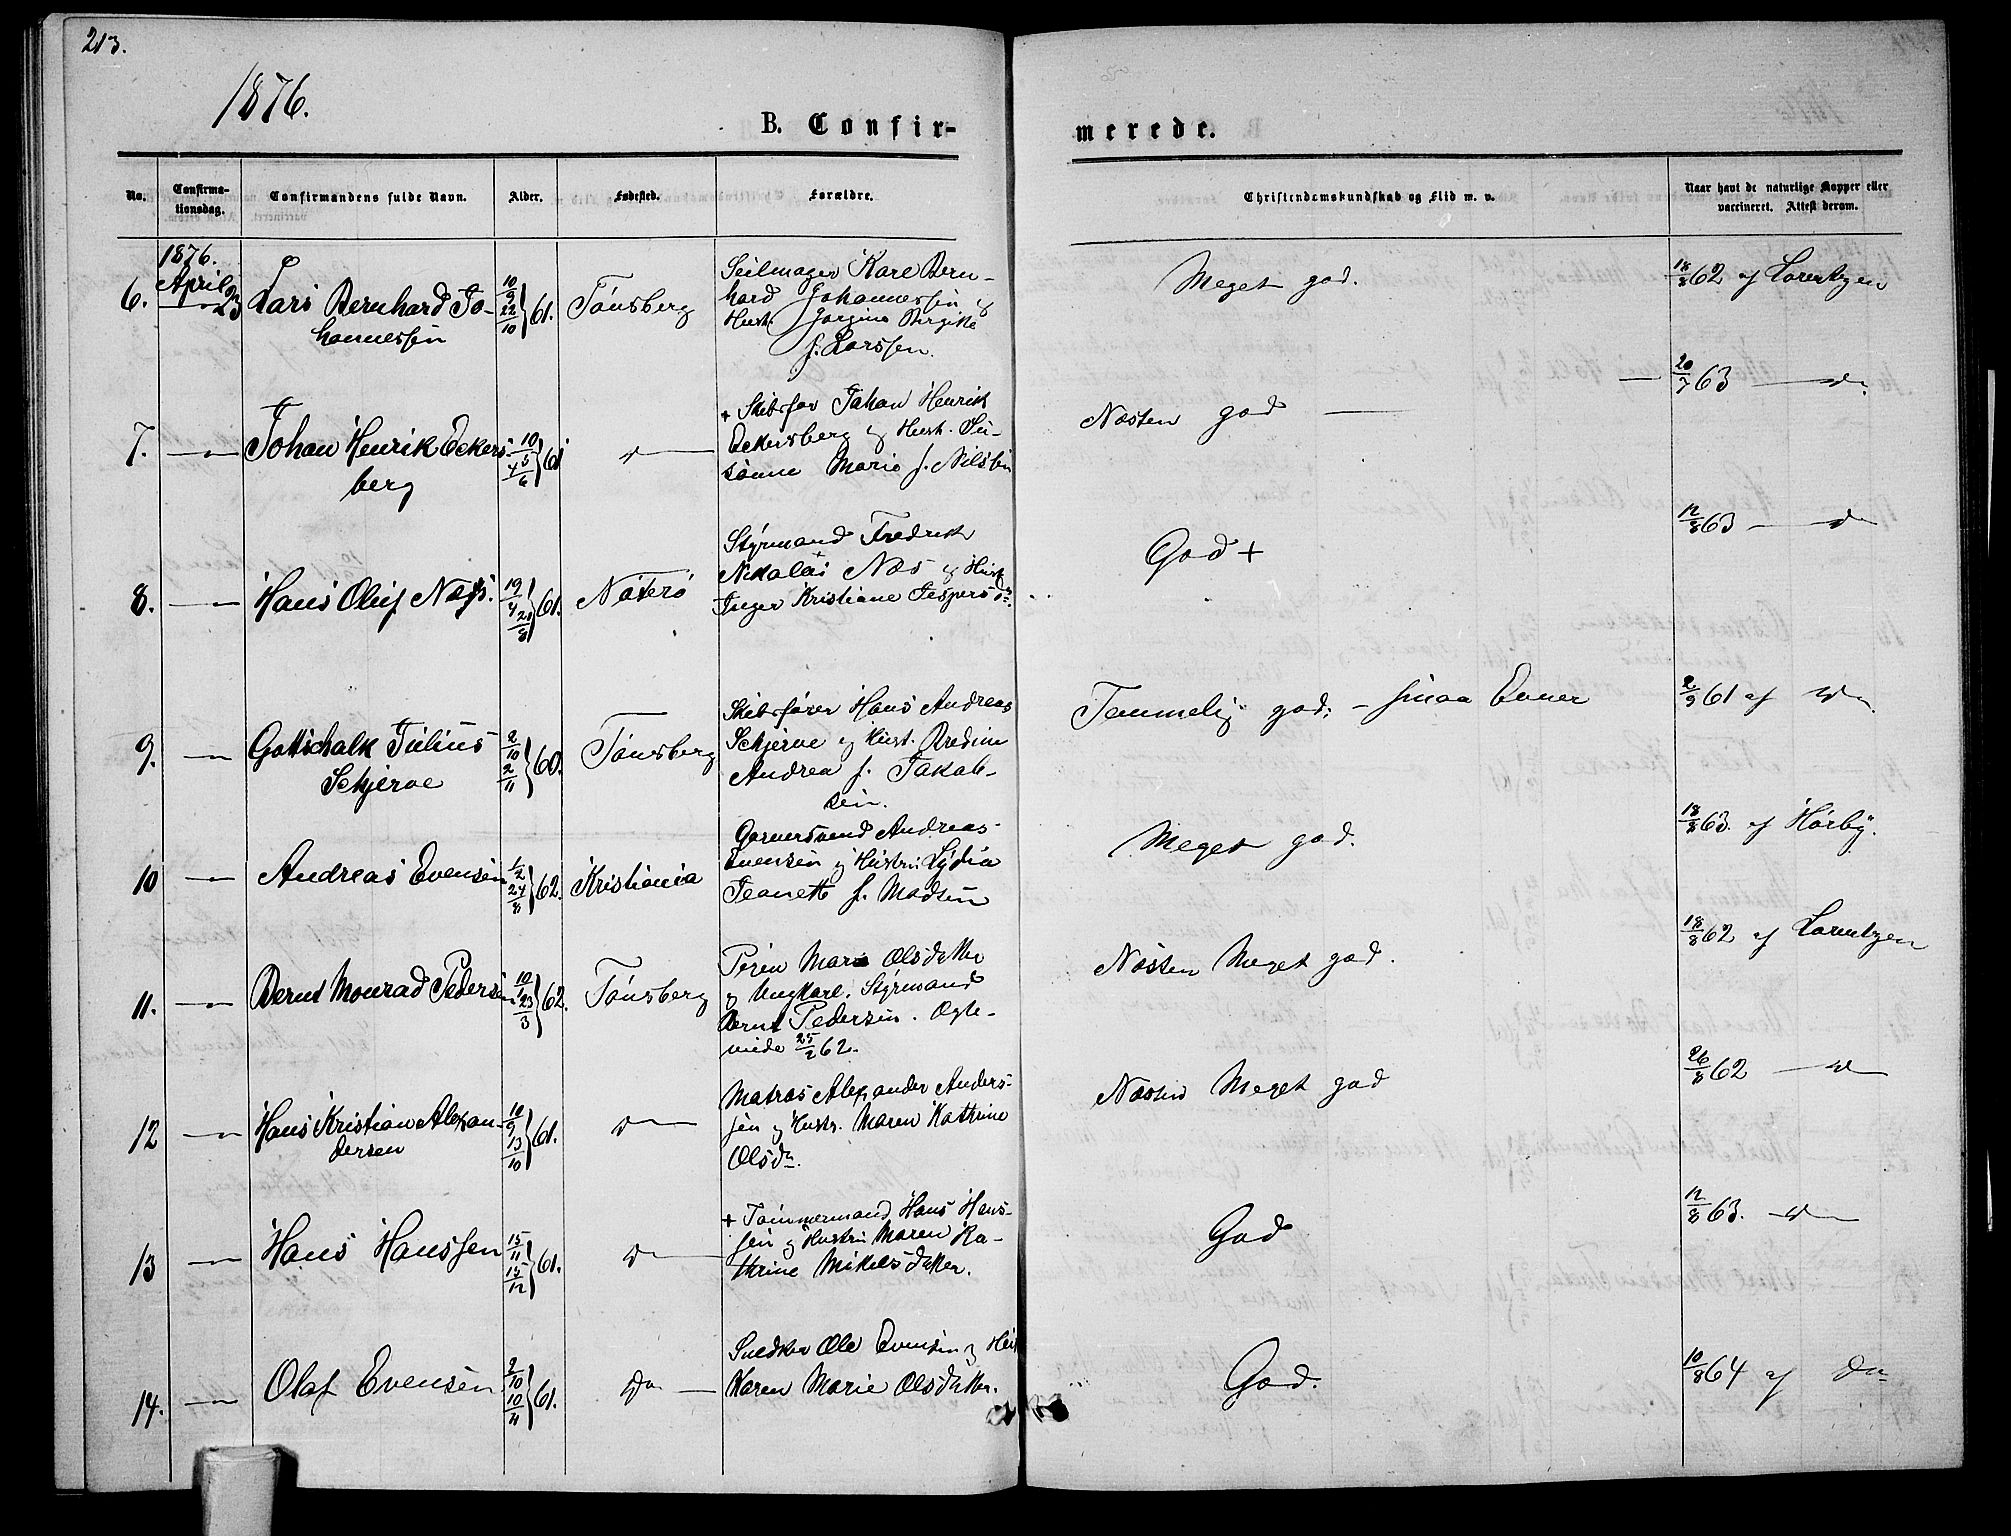 213.
1876.
B. Confir-
merede.
No.
Confirma-
tionsdag.
Confirmandens fulde Navn.
Alder.
Fødested.
Forældre.
Christendomskundskab og Flid m. v.
Naar havt de naturlige Kopper eller
vaccineret. Attest derom.
1876.
6. April 23 Lars Bernhard Jo-
hannessen
10/9 22/10 } 61. Tønsberg
Seilmager Karl Bern-
hard Johannessen og
Hust. Jorgine Bergitte
f. Larssen.
Meget god.
18/8 62 af Lorentzen
7. — Johan Henrik Eckers-
berg
10/4 5/6 } 61 do
+ Skibsfør Johan Henrik
Eckersberg og Hust. Su-
sanne Marie f. Nilsen
Næsten god —
20/7 63 — do
8. — Hans Oluf Næs. 19/4 20/8 } 61. Nøterø
Styrmand Fredrik
Nikolai Næs og Hust
Inger Kristiane Jespersdr.
God +
12/8 63 — do
9. — Gottschalk Julius
Schjerve
2/10 2/11 } 60. Tønsberg
Skibsfører Hans Andreas
Schjerve og Hust. Bredine
Andrea f. Jakob-
sen.
Temmelig god; - smaa Evner
2/9 61 af do
10 — Andreas Evensen 1/2 24/8 } 62. Kristiania
Garversvend Andreas
Evensen og Hustru Lydia
Jeanett f. Madsen
Meget god.
18/8 63. af Hørbÿ.
11. — Bernt Monrad Pedersen 10/1 23/3 } 62. Tønsberg
Peren Marie Olsdatter
og Ungkarl. Styrmand
Bernt Pedersen. Ægte-
viede 25/2 62.
Næsten Meget god.
18/8 62 af Lorentzen
12 — Hans Kristian Alexan-
dersen
10/9 13/10 } 61. do
Matros Alexander Anders-
sen og Hustr. Maren Kathrine
Olsdr.
Næsten Meget god
26/8 62 — do
13 — Hans Hanssen 15/11 15/12 } 61. do
+ Tømmermand Hans Hans-
sen og Hustru Maren Ka-
thrine Mikelsdatter.
God
12/8 63. — do
14. — Olaf Evensen 2/10 10/11 } 61. do —
Snedker Ole Evensen og Hust
Karen Marie Olsdatter.
God.
10/8 64 af do